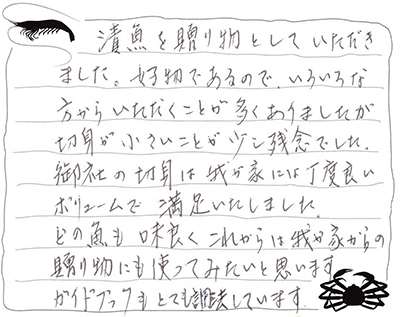 漬魚を贈り物としていただき
ました。好物であるので、いろいろな
方からいただくことが多くありましたが
切身が小さいことが少し残念でした。
御社の切身は我が家には丁度良い
ボリュームで満足いたしました。
どの魚も味良くこれからは我が家からの
贈り物にも使ってみたいと思います
ガイドブックもとても重宝しています.